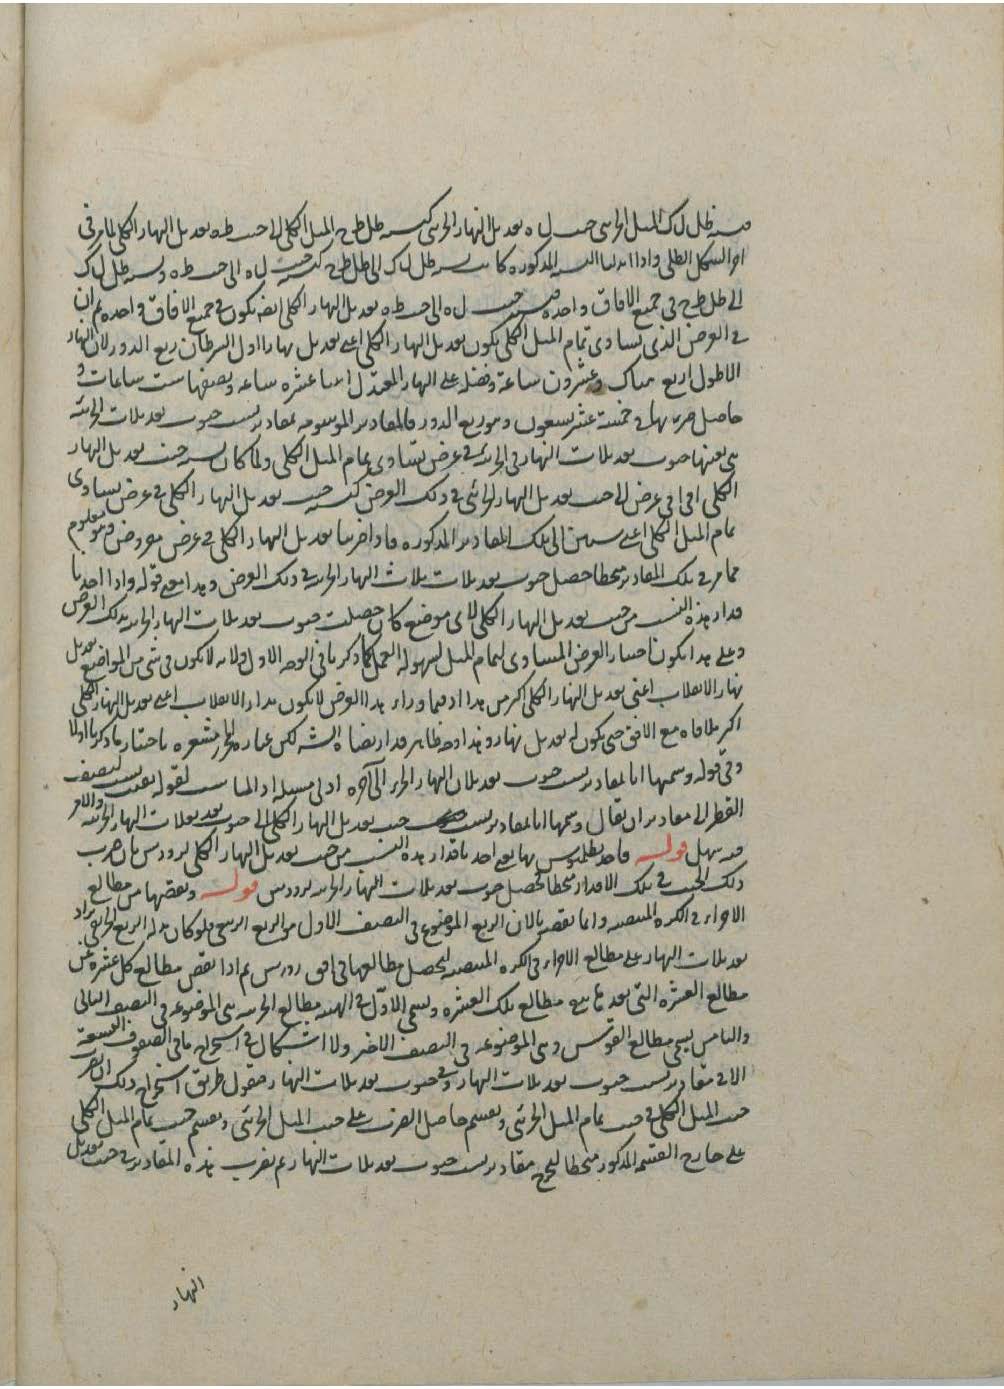 ظل ل ك الميل الجزئى جيب ل ه تعديل النهار الجزئى كنسبه ظل ط ح الميل الكلى الى جيب ط ه تعديل النهار الكلى لما مر فى
اخر الشكل الظلى واذا ابدلنا النسبه المذكوره كانت نسبه ظل ل ك الى ظل ط ح كنسبه جيب ل ه الى جيب ط ه ونسبه ظل ل ك
الى ظل ط ح فى جميع الافاق واحده فنسبه جيب ل ه الى جيب ط ه تعديل النهار الكلى ايضا يكون فى جميع الافاق واحده ثم ان
فى العرض الذى يساوى تمام الميل الكلى يكون تعديل النهار الكلى اعنى تعديل نهار اول السرطان ربع الدور لان النهار
الاطول اربع وعشرون ساعة وفضله على النهار المعتدل اثنا عشره ساعه ونصفها ست ساعات و
حاصل ضربها فى خمسة عشر تسعون وهو ربع الدور فالمقادير الموسومه بمقادير نسب جيوب تعديلات الجزئيه
هى بعينها جيوب تعديلات النهار فى الجزئيه فى عرض يساوى تمام الميل الكلى ولما كان نسبه جيب تعديل النهار
الكلى فى اى عرض الى جيب تعديل النهار الجزئى فى ذلك العرض كنسبه جيب تعديل النهار الكلى فى عرض يساوى
تمام الميل الكلى اعنى ستين الى تلك المقادير المذكوره فاذا ضربنا تعديل النهار الكلى فى عرض مفروض وهو معلوم
مما مر فى تلك المقادير منحطا حصل جيوب تعديلات النهار الجزئيه فى ذلك العرض وهذا معنى قوله واذا اخذنا
قدار هذه النسب من جيب تعديل النهار الكلى لاى موضع كان حصلت جيوب تعديلات النهار الجزئيه بذلك العرض
وعلى هذا يكون اختيار العرض المساوى لتمام الميل لسهوله العمل كما ذكرنا فى الوجه الاول ولانه لا يكون فى شى من المواضع تعديل
نهار الانقلاب اعنى تعديل النهار الكلى اكثر من هذا اذ فيما وراء هذا العرض لا يكون مدار الانقلاب اعنى تعديل النهار الكلى
اكثر ملاقاه مع الافق حتى يكون له تعديل نهار وهذا وجه ظاهر لكن عباره المحرر مشعره باختيار ما ذكرنا اولا
وفى قوله وسميها انا بمقادير نسب جيوب تعديلات النهار الجزئيه الى آخره لقوله نصف
القطر الى مقادير ان يقال وسميها انا بمقادير نسب جيب تعديل النهار الكلى الى جيوب تعديلات النهار الجزئيه والامر
فيه سهل قوله فاخذ بطلميوس بها يعنى اخذ باقدار هذه النسب من جيب تعديل النهار الكلى لرودس بان ضرب
ذلك الجيب فى تلك الاقدار منحطا فحصل جيوب تعديلات النهار الجزئيه لرودس قوله ونقصها من مطالع
الاجزاء فى الكره المنتصبه وانما نقص لان الربع الموضوع فى النصف الاول هو الربع الربيعى فلو كان بدله الربع الخريفى يزاد
تعديلات النهار على مطالع الاجزاء فى الكره المنتصبه ليحصل مطالعها فى افق رودس ثم اذا نقص مطالع كل عشره عن
مطالع العشره التى بعدها بقى مطالع تلك العشره ويسمى الاول فى الهيئه مطالع الجزء وهى الموضوعه فى النصف الثانى
والثانى يسمى مطالع القوس وهى الموضوعه فى النصف الاخير ولا اشكال فى استخراج ما فى الصفوف التسعة
الا فى مقادير نسب جيوب تعديلات النهار وفى جيوب تعديلات النهار فنقول طريق استخراج ذلك ان يضرب
جيب الميل الكلى فى جيب تمام الميل الجزئى ويقسم حاصل الضرب على جيب الميل الجزئى ويقسم جيب تمام الميل الكلى
على خارج القسمه المذكور منحطا ليخرج مقادير نسب جيوب تعديلات النهار ثم يضرب هذه المقادير فى جيب تعديل
النهار